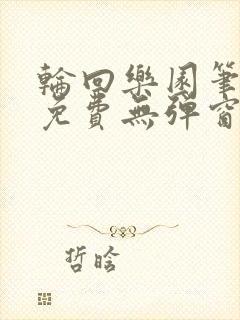 輪回樂園筆
免費無彈窗
哲晗